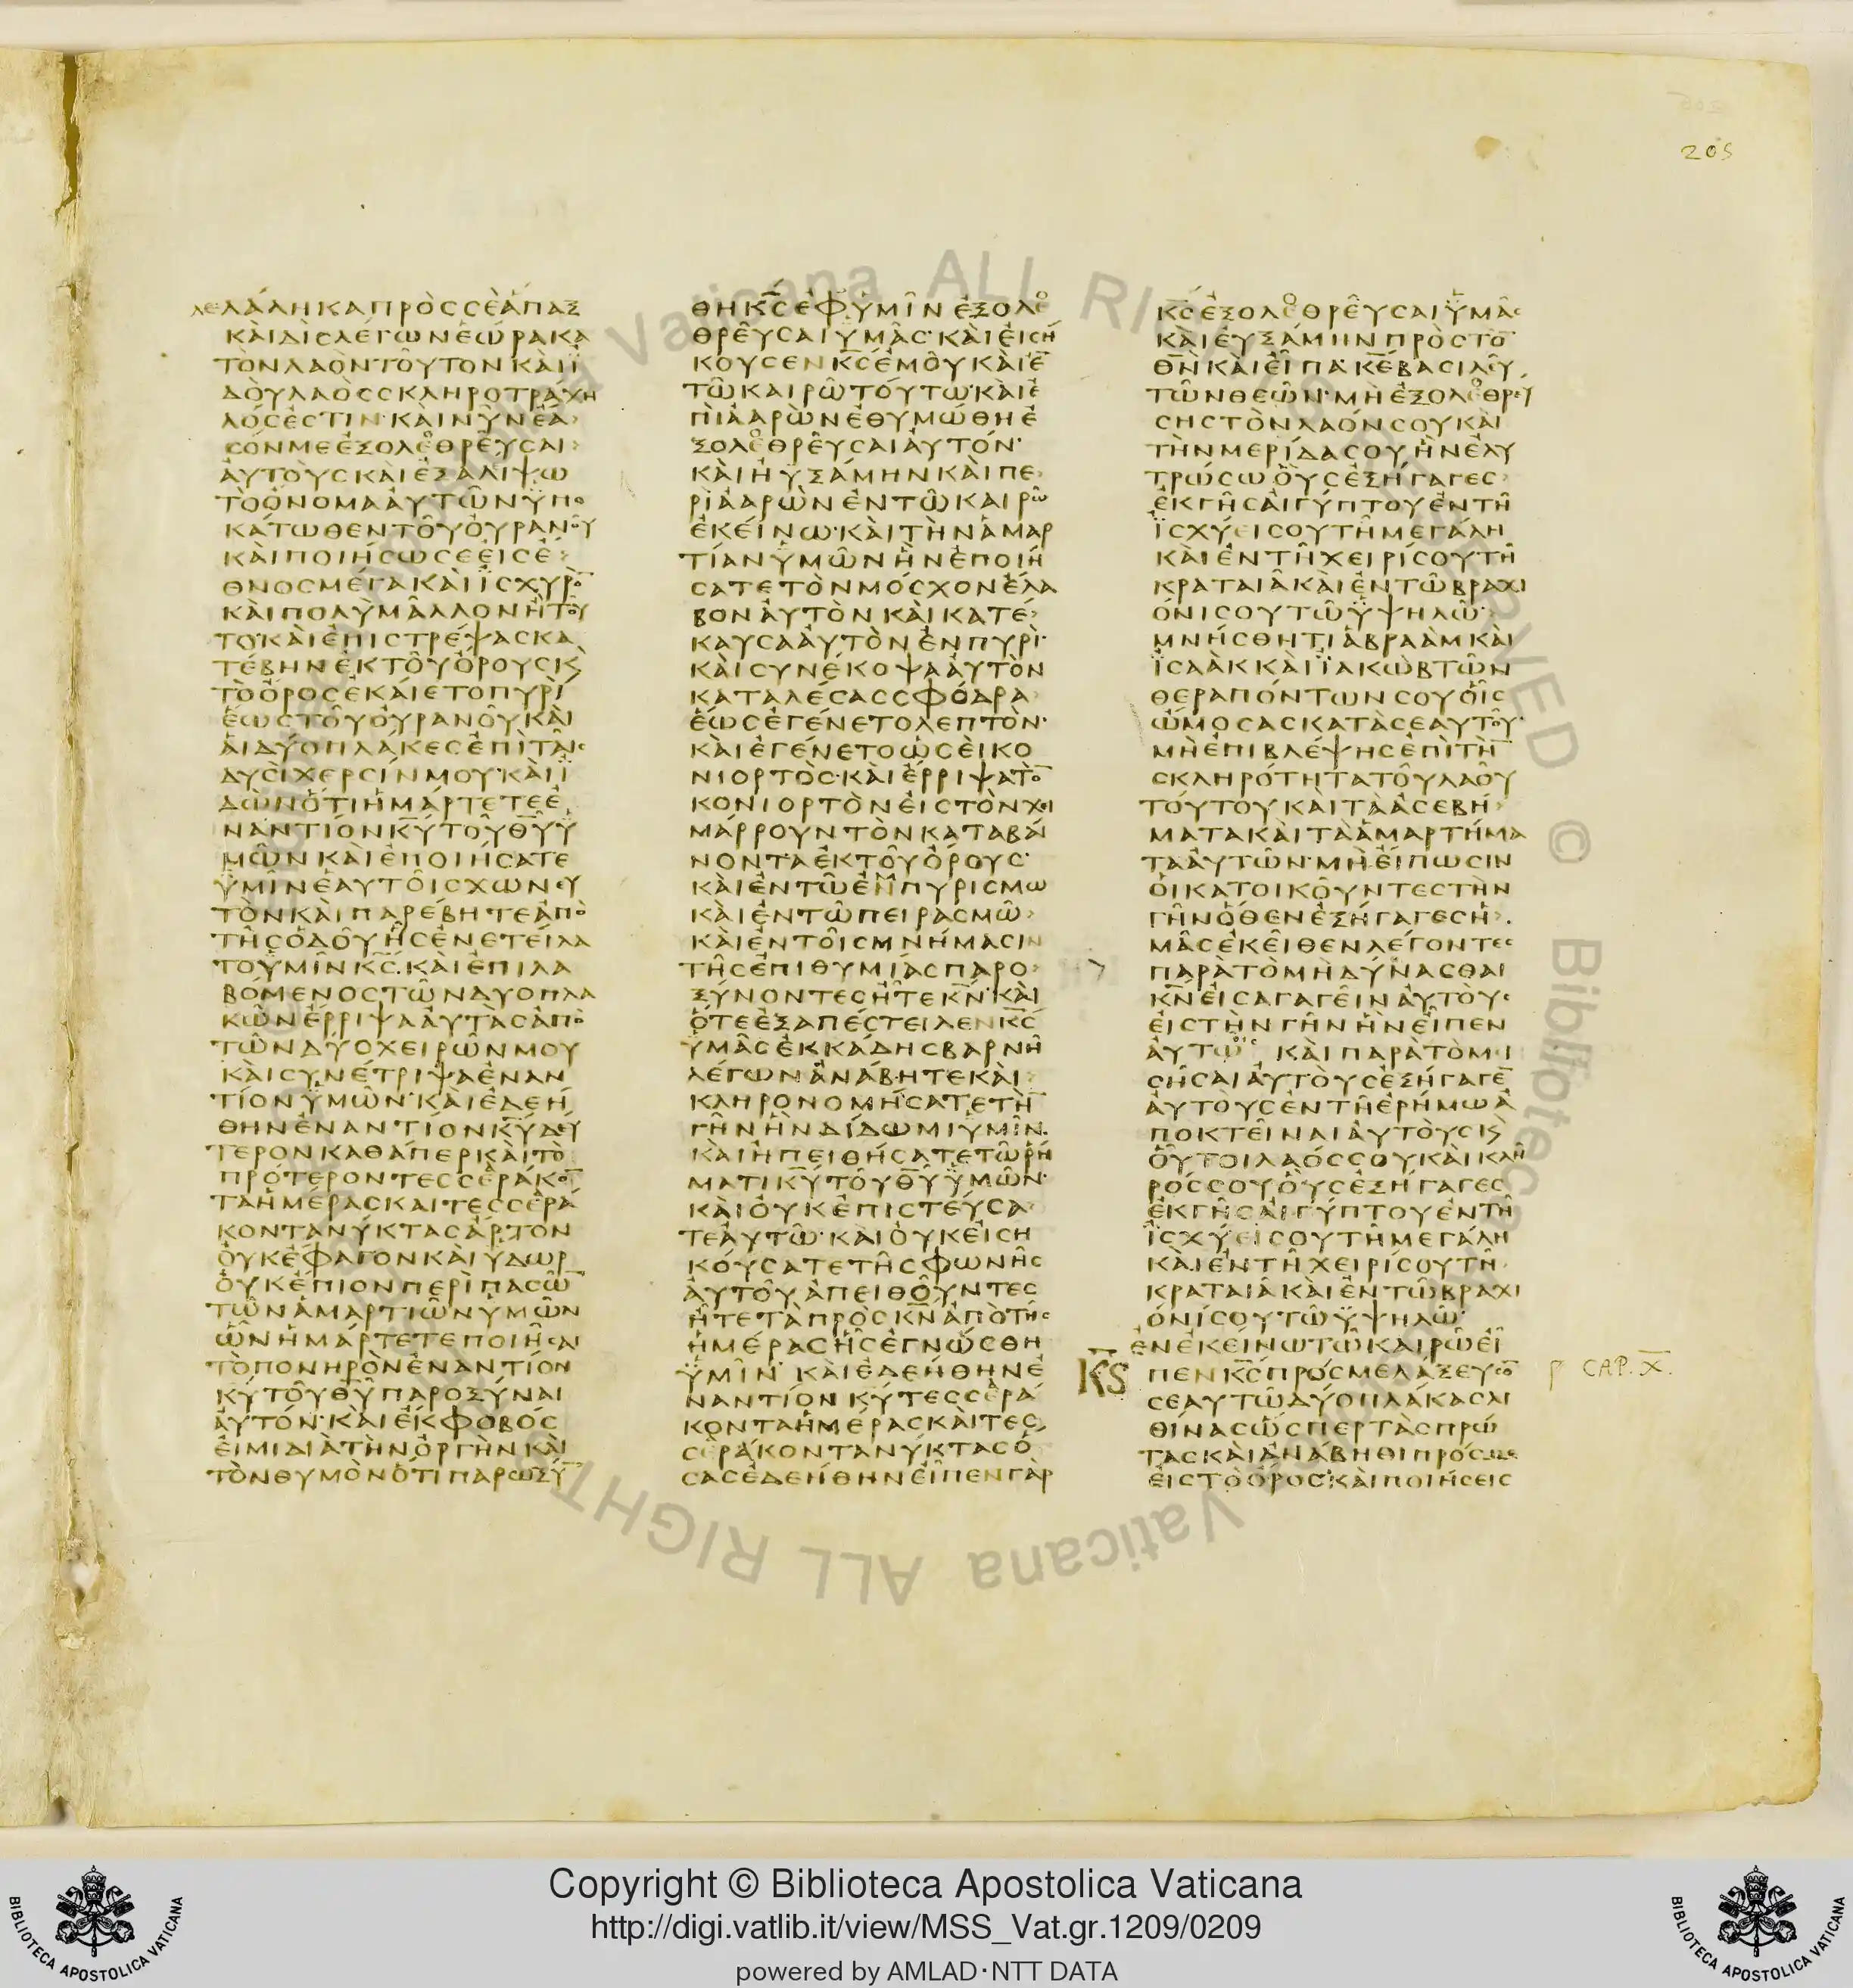 205
λελάληκαπρὸςσὲἅπαξ
καὶδὶςλέγωνἑώρακα
τὸνλαὸντοῦτονκαὶἰ
δοὺλαὸςσκληροτράχη
λόςἐστιν·καὶνῦνἔα
σόνμεἐξολεθρεῦσαι
αὐτοὺςκαὶἐξαλίψω
τὸὄνομααὐτῶνὑπο
κάτωθεντοῦοὐρανοῦ
καὶποιήσωσεεἰςἔ
θνοςμέγακαὶἰσχυρὸ̅
καὶπολὺμᾶλλονἢτοῦ
το·καὶἐπιστρέψαςκα
τέβηνἐκτοῦὄρουςκ̀
τὸὄροςἐκαίετοπυρὶ
ἕωςτοῦοὐρανοῦκαὶ
αἱδύοπλάκεςἐπὶταῖς
δυσὶχερσίνμου·καὶἰ
δὼνὅτιἡμάρτετεἐ
ναντίονκ̅υ̅τοῦθ̅υ̅ὑ
μῶνκαὶἐποιήσατε
ὑμῖνἑαυτοῖςχωνευ
τὸνκαὶπαρέβητεἀπὸ
τῆςὁδοῦἧςἐνετείλα
τοὑμῖνκ̅ς̅·καὶἐπιλα
βόμενοςτῶνδυοπλα
κῶνἔρριψααὐτὰςἀπὸ
τῶνδυοχειρῶνμου
καὶσυνέτριψαἐναν
τίονὑμῶν·καὶἐδεή
θηνἐναντίονκ̅υ̅δεύ
τερονκαθάπερκαὶτὸ
πρότεροντεσσεράκο̅
ταἡμέραςκαιτεσσερά
κοντανύκταςἄρτον
οὐκἔφαγονκαὶὕδωρ
οὐκἔπιονπερὶπασῶ̅
τῶνἁμαρτιῶνὑμῶν
ὧνἡμάρτετεποιῆσαι
τὸπονηρὸνἐναντίον
κ̅υ̅τοῦθ̅υ̅παροξύναι
αὐτόν·καὶἔκφοβός
εἰμιδιὰτὴνὀργὴνκαὶ
τὸνθυμὸνὅτιπαρωξύ̅
θηκ̅ς̅ἐφὑμῖνἐξολε
θρεῦσαιὑμᾶς·καὶεἰσή
κουσενκ̅ς̅ἐμοῦκαὶἐ̅
τῶκαιρῶτούτω·καὶἐ
πὶἀαρὼνἐθυμώθηἐ
ξολεθρεῦσαιαὐτόν·
καὶηὐξάμηνκαὶπε
ρὶἀαρὼνἐντῶκαιρῶ
ἐκείνω·καὶτὴνἁμαρ
τίανὑμῶνἣνἐποιή
σατετὸνμόσχονἔλα
βοναὐτὸνκαὶκατέ
καυσααὐτὸνἐνπυρὶ·
καὶσυνέκοψααὐτὸν
καταλέσαςσφόδρα
ἕωςἐγένετολεπτὸν·
καὶἐγένετοὡσεὶκο
νιορτὸς·καὶἔρριψατὸ̅
κονιορτὸνεἰςτὸνχει
μάρρουντὸνκαταβαί
νονταἐκτοῦὄρους·
καὶἐντῶἐνπυρισμω
καὶἐντῶπειρασμῶ
καὶἐντοῖςμνήμασιν
τῆςἐπιθυμίαςπαρο
ξύνοντεςἦτεκ̅ν̅·καὶ
ὅτεἐξαπέστειλενκ̅ς̅
ὑμᾶςἐκκάδηςβαρνὴ
λέγωνἀνάβητεκαὶ
κληρονομήσατετὴ̅
γῆνἣνδίδωμιὑμῖν·
καὶἠπειθήσατετῶρή
ματικ̅υ̅τοῦθ̅υ̅ὑμῶν·
καὶοὐκἐπιστεύσα
τεαὐτῶ·καὶοὐκεἰση
κούσατετῆςφωνῆς
αὐτοῦἀπειθοῦντες
ἦτετὰπρὸςκ̅ν̅ἀπὸτῆς
ἡμέραςἧςἐγνώσθη
ὑμῖν·καὶἐδεήθηνἐ
ναντίονκ̅υ̅τεσσερά
κονταἡμέραςκαὶτες
σεράκοντανύκταςὅ
σαςἐδεήθηνεἶπενγὰρ
κ̅ς̅ἐξολεθρεῦσαιὑμᾶς
καὶεὐξάμηνπρὸςτὸ̅
θ̅ν̅καὶεἶπα·κ̅ε̅βασιλεῦ
τῶνθεῶν·μὴἐξολεθρεύ
σηςτὸνλαόνσουκαὶ
τὴνμερίδασουἣνἐλυ
τρώσωοὓςἐξήγαγες
ἐκγῆςαἰγύπτουἐντῆ
ἰσχύεισουτῆμεγάλη
καὶἐντῆχειρίσουτῆ
κραταιᾶκαὶἐντῶβραχι
όνισουτῶὑψηλῶ·
μνήσθητιἁβραὰμκαὶ
ἰσαὰκκαὶἰακὼβτῶν
θεραπόντωνσουοἷς
ὤμοσαςκατὰσεαυτοῦ·
μὴἐπιβλέψηςἐπὶτὴ̅
σκληρότητατοῦλαοῦ
τούτουκαὶτὰἀσεβή
ματακαὶτὰἁμαρτήμα
τααὐτῶν·μὴεἴπωσιν
οἱκατοικοῦντεςτὴν
γῆνὅθενἐξήγαγεςἡ
μᾶςἐκεῖθενλέγοντες
παρὰτὸμὴδύνασθαι
κ̅ν̅εἰσαγαγεῖναὐτοὺς
εἰςτὴνγῆνἣνεἶπεν
αὐτοῖς καὶπαρὰτὸμι
σῆσαιαὐτοὺςἐξήγαγε̅
αὐτοὺςἐντῆἐρήμωἀ
ποκτεῖναιαὐτούςκ̀
οὗτοιλαόςσουκαὶκλῆ
ρόςσουοὓςἐξήγαγες
ἐκγῆςαἰγύπτουἐντῆ
ἰσχύεισουτῆμεγάλη
καὶἐντῆχειρίσουτῆ
κραταιᾶκαὶἐντῶβραχι
όνισουτῶὑψηλῶ·
ἐνἐκείνωτῶκαιρῶεἶ
πενκ̅ς̅πρόςμελάξευσο̅
σεαυτῶδύοπλάκαςλι
θίναςὥσπερτὰςπρώ
ταςκαὶἀνάβηθιπρόςμε
εἰςτὸὄρος·καὶποιήσεις
CAP. X.
Copyright © Biblioteca Apostolica Vaticana
http://digi.vatlib.it/view/MSS_Vat.gr.1209/0209
powered by AMLAD·NTT DATA
BIBLIOTECA APOSTOLICA VATICANA
BIBLIOTECA APOSTOLICA VATICANA